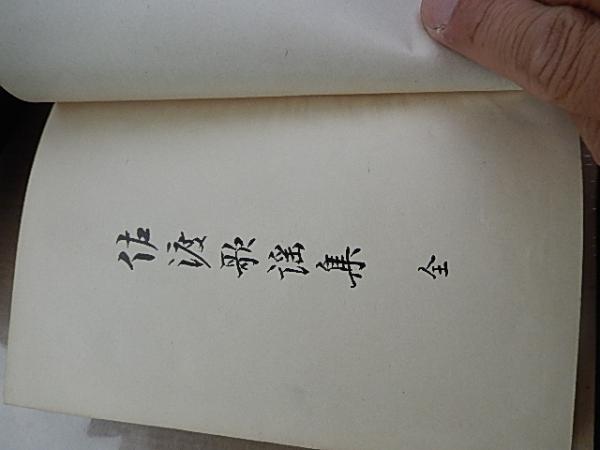 佐渡歌謡集 全